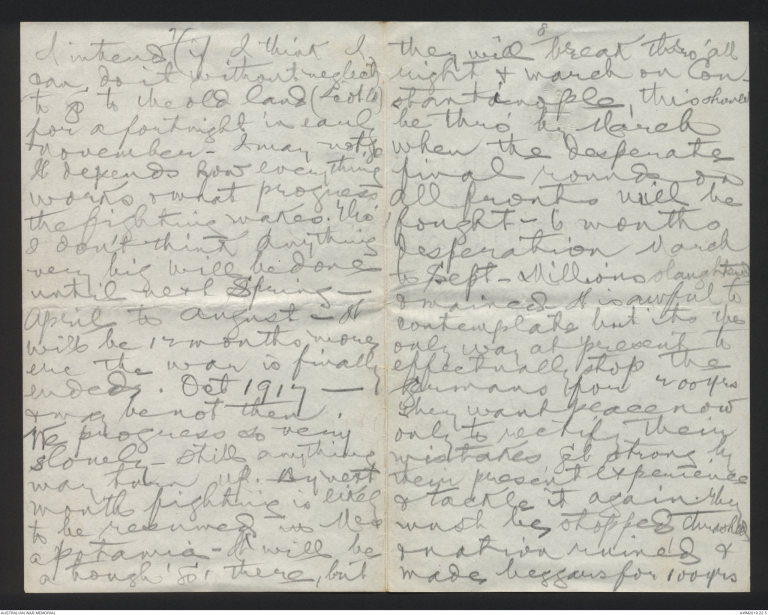 7
I intend (if I think I
can do it without neglect)
to go to the old land
for a fortnight in early
November. I may not go
It depends how everything
works & what progress
the fighting makes. Tho'
I don't think anything
very big will be done
until next Spring -
April to August - It
will be 12 months more
ere the war is finally
ended. Oct 1917 -
& may be not then.
We progress so very
slowly - still anything
may turn up. By next
month fighting is likely
to be resumed in Mes
opotamia - It will be
a tough go, there, but
8
they will break thro' all
right & march on Con-
stantinople, this should
be thro' by March
when the desperate
final rounds on
all fronts will be
fought - 6 months
desperation March
to Sept - Millions slaughtered
& maimed It is awful to
contemplate but its the
only way at present to
effectually stop the
Germans for 200 yrs
They want peace now
only to rectify their
mistakes get strong by
their present experience
& tackle it again They
must be stopped thrashed
& nation ruined &
made beggars for 100 yrs
AUSTRALIAN WAR MEMORIAL